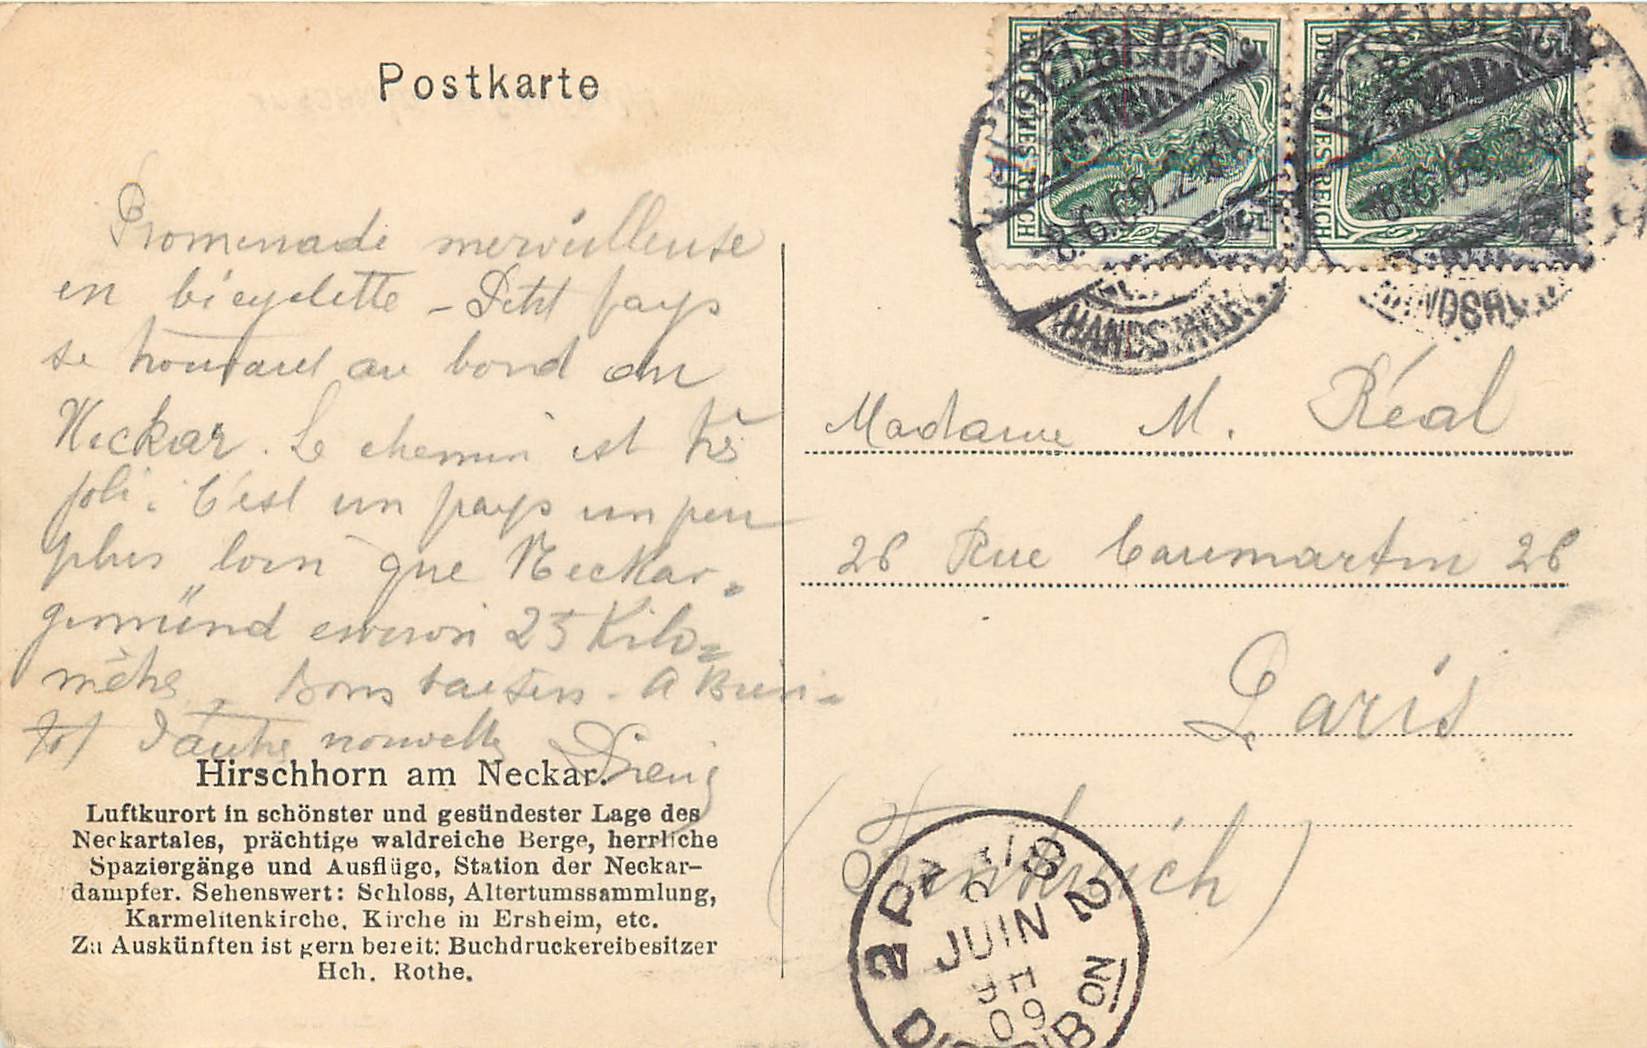 Postkarte
Promenade merveilleuse
en bicyclette – Petit pays
se trouvant au bord du
Neckar. Le chemin est très
joli. C'est un pays un peu
plus loin que Neckar=
gemünd environ 25 Kilo=
mètres. Bons baisers. A Bien-
tot d'autres nouvelles
Hirschhorn am Neckar.
Luftkurort in schönster und gesündester Lage des
Neckartales, prächtige waldreiche Berge, herrliche
Spaziergänge und Ausflüge, Station der Neckar-
dampfer. Sehenswert: Schloss, Altertumssammlung,
Karmelitenkirche, Kirche in Ersheim, etc.
Zu Auskünften ist gern bereit: Buchdruckereibesitzer
Hch. Rothe.
DEUTSCHES REICH
5
5
DEUTSCHES REICH
5
8.6.09.
HANDSCH
8.6.09.
HANDSCH
Madame M. Réal
26 Rue Caumartin 26
Paris
(Frankreich)
PARIS 2
2
JUIN
09
DISTRIBON